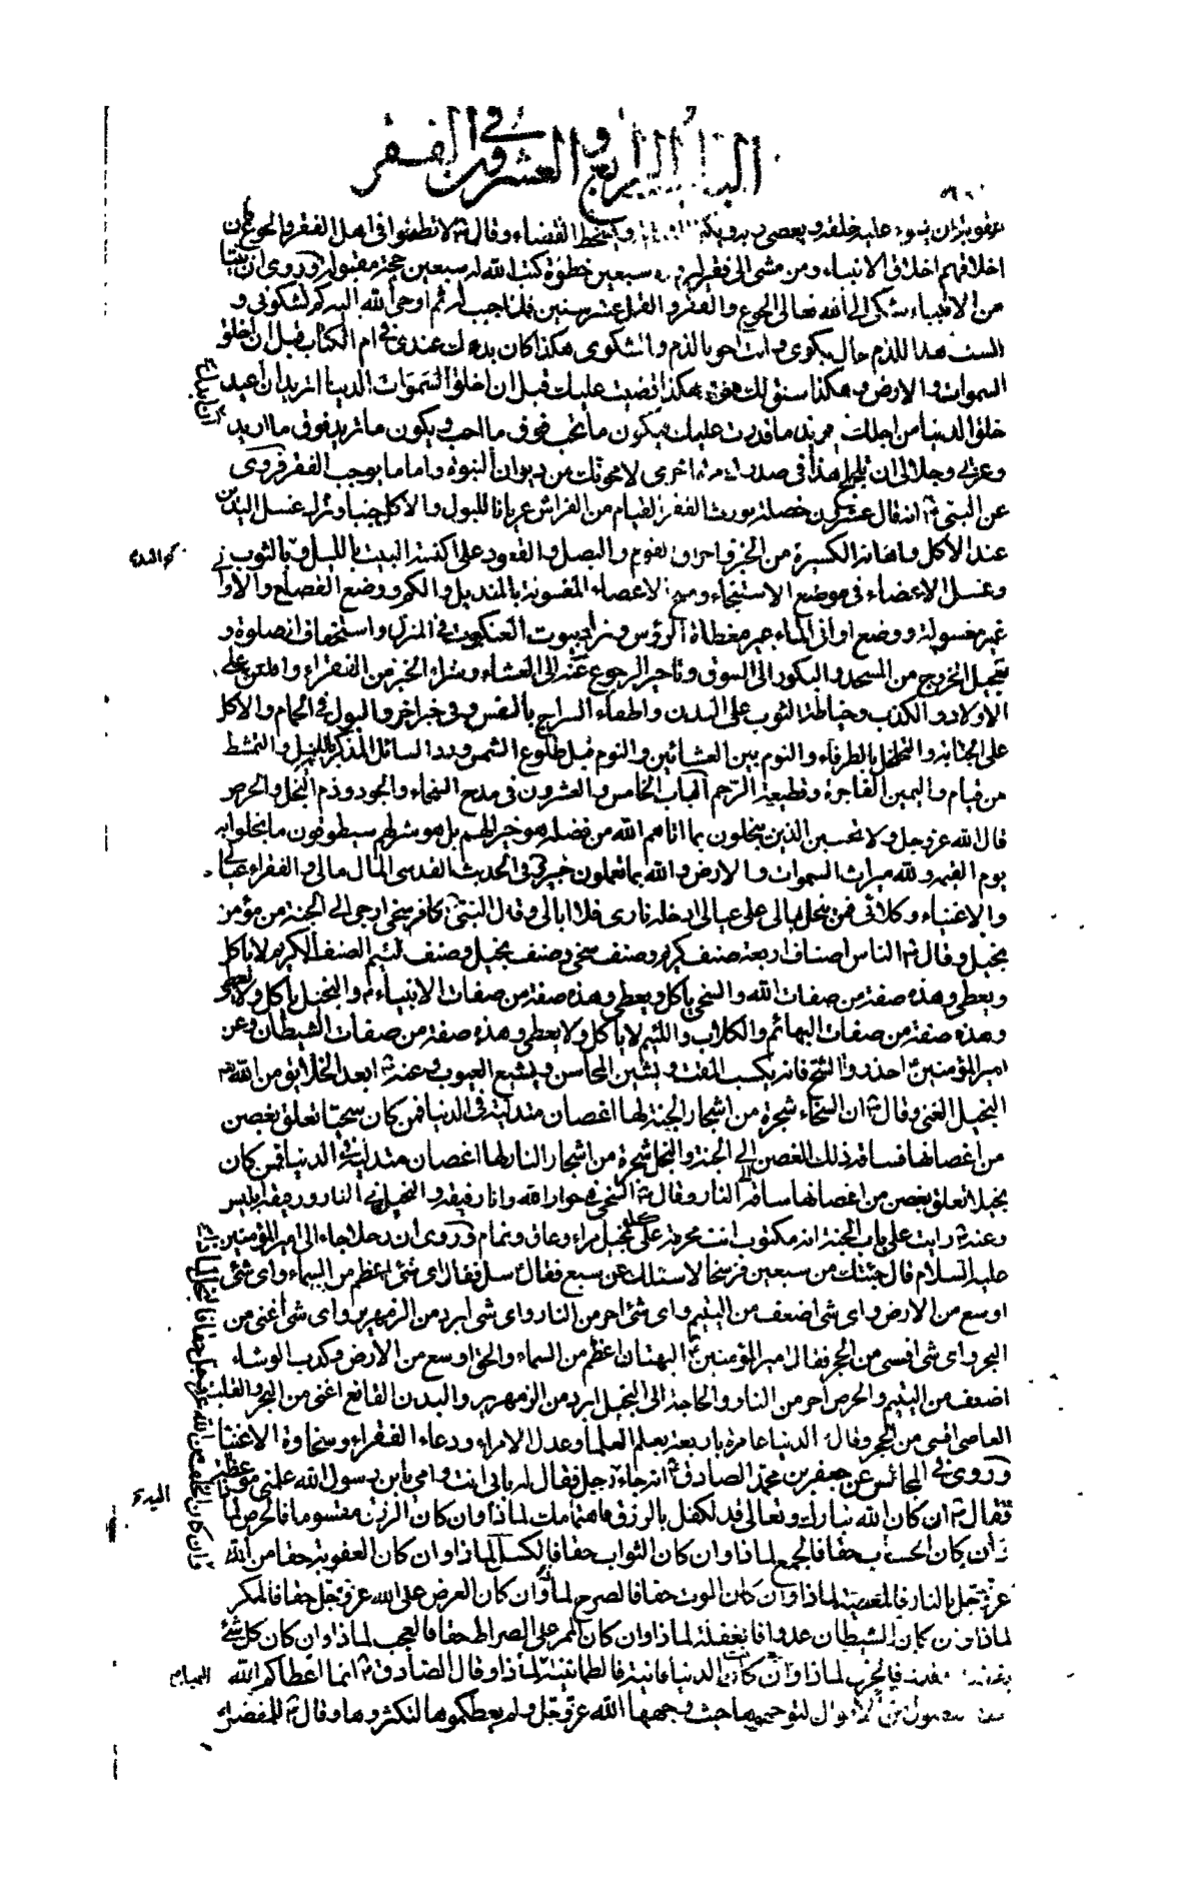 الباب الرابع والعشرون في الفقر
عقوبته ان يسوء عليه خلقه ويعصي ربه ويكثر ويسخط القضاء وقال ع لا تطعنوا في اهل الفقر والجوع فان
اخلاقهم اخلاق الانبياء ومن مشى الى فقير سبعين خطوة كتب الله له سبعين حجة مقبولة وروى ان نبيا
من الانبياء شكى الى الله تعالى الجوع والفقر والقمل عشر سنين فما اجيب له ثم اوحى الله اليه كم تشكوني و
لست هذا للذم حال بكوى وانت احق بالذم والشكوى هكذا كان بدؤك عندي في ام الكتاب قبل ان اخلق
السموات والارض وهكذا سبق لك وهكذا قضيت عليك قبل ان اخلق السموات الدنيا اتريد ان اعيد
خلق الدنيا من اجلك ام تريد ما قدرت عليك فيكون ما تحب فوق ما احب ويكون ما تريد فوق ما اريد
وعزتي وجلالي ان تلجلج هذا في صدرك مرة اخرى لامحونك من ديوان النبوة واما ما يوجب الفقر فروى
عن النبي ع انه قال عشرون خصلة يورث الفقر القيام من الفراش عريانا للبول والاكل جنبا وترك غسل اليدين
عند الاكل واهانة الكسيرة من الخبز واحراق الثوم والبصل والقعود على اكنسة البيت بالليل وبالثوب
وغسل الاعضاء في موضع الاستنجاء ومسح الاعضاء المغسولة بالمنديل والكم ووضع القصاع والاواني
غير مغسولة ووضع اواني الماء غير مغطاة الرؤس وترك بيوت العنكبوت في المنزل واستخفاف الصلوة و
تعجيل الخروج من المسجد والبكور الى السوق وتاخير الرجوع عنه الى العشاء وشراء الخبز من الفقراء واللعن على
الاولاد والكذب وخياطة الثوب على البدن واطفاء السراج بالنفس وفي خبر اخر والبول في الحمام والاكل
على الجنابة والتخلل بالطرفاء والنوم بين العشائين والنوم قبل طلوع الشمس ورد السائل الذكر بالليل والتمشط
من قيام واليمين الفاجرة وقطيعة الرحم الباب الخامس والعشرون في مدح السخاء والجود وذم البخل والحرص
قال الله عز وجل ولا تحسبن الذين يبخلون بما اتاهم الله من فضله هو خيرا لهم بل هو شر لهم سيطوقون ما بخلوا به
يوم القيمة ولله ميراث السموات والارض والله بما تعملون خبير وفي الحديث القدسي المال مالي والفقراء عيالي
والاغنياء وكلائي فمن بخل بمالي على عيالي ادخله ناري فلا ابالي وقال النبي ع كافر سخي ارجى الى الجنة من مؤمن
بخيل وقال ع الناس اصناف اربعة صنف كريم وصنف سخي وصنف بخيل وصنف لئيم الصنف الكريم لا ياكل
ويعطي وهذه صفة من صفات الله والسخي ياكل ويعطي وهذه صفة من صفات الانبياء ع والبخيل ياكل ولا يعطي
وهذه صفة من صفات البهائم والكلاب واللئيم لا ياكل ولا يعطي وهذه صفة من صفات الشيطان وعن
امير المؤمنين ع احذروا الشح فانه يكسب المقت ويشين المحاسن ويشيع العيوب وعنه ع ابعد الخلايق من الله
البخيل الغني وقال ع ان السخاء شجرة من اشجار الجنة لها اغصان متدلية في الدنيا فمن كان سخيا تعلق بغصن
من اغصانها فساقه ذلك الغصن الى الجنة والبخل شجرة من اشجار النار لها اغصان متدلية في الدنيا فمن كان
بخيلا تعلق بغصن من اغصانها ساقه الى النار وقال ع السخي في جوار الله وانا رفيقه والبخيل في النار ورفيقه ابليس
وعنه ع رايت على باب الجنة انه مكتوب انت محرمة على كل بخيل مراء وعاق ونمام وروى ان رجلا جاء الى امير المؤمنين
عليه السلام قال جئتك من سبعين فرسخا لاسئلك عن سبع فقال سل فقال اى شئ اعظم من السماء واى شئ
اوسع من الارض واى شئ اضعف من اليتيم واى شئ احر من النار واى شئ ابرد من الزمهرير واى شئ اغنى من
البحر واى شئ اقسى من الحجر فقال امير المؤمنين ع البهتان اعظم من السماء والحق اوسع من الارض وكذب الوشاء
اضعف من اليتيم والحرص احر من النار والحاجة الى البخيل ابرد من الزمهرير والبدن القانع اغنى من البحر والقلب
العاصي اقسى من الحجر وقال ع الدنيا عامرة باربعة بعلم العلماء وعدل الامراء ودعاء الفقراء وسخاوة الاغنيا
وروى في المجالس عن جعفر بن محمد الصادق ع انه جاءه رجل فقال له بابي انت وامي يابن رسول الله علمني موعظة
فقال ع ان كان الله تبارك وتعالى قد تكفل بالرزق فاهتمامك لماذا وان كان الرزق مقسوما فالحرص لماذا
وان كان الحساب حقا فالجمع لماذا وان كان الثواب حقا فالكسل لماذا وان كان العقوبة حقا من الله
عز وجل بالنار فالمعصية لماذا وان كان الموت حقا فالفرح لماذا وان كان العرض على الله عز وجل حقا فالمكر
لماذا وان كان الشيطان عدوا فالغفلة لماذا وان كان الممر على الصراط حقا فالعجب لماذا وان كان كل شئ
بقضاء وقدر فالحزن لماذا وان كانت الدنيا فانية فالطمانينة لماذا وقال الصادق ع انما اعطاكم الله
من الاموال لتوجهوها حيث وجهها الله عز وجل ولم يعطكموها لتكثروها وقال ع للمفضل
وان كان الخلف من الله عز وجل حقا فالبخل لماذا